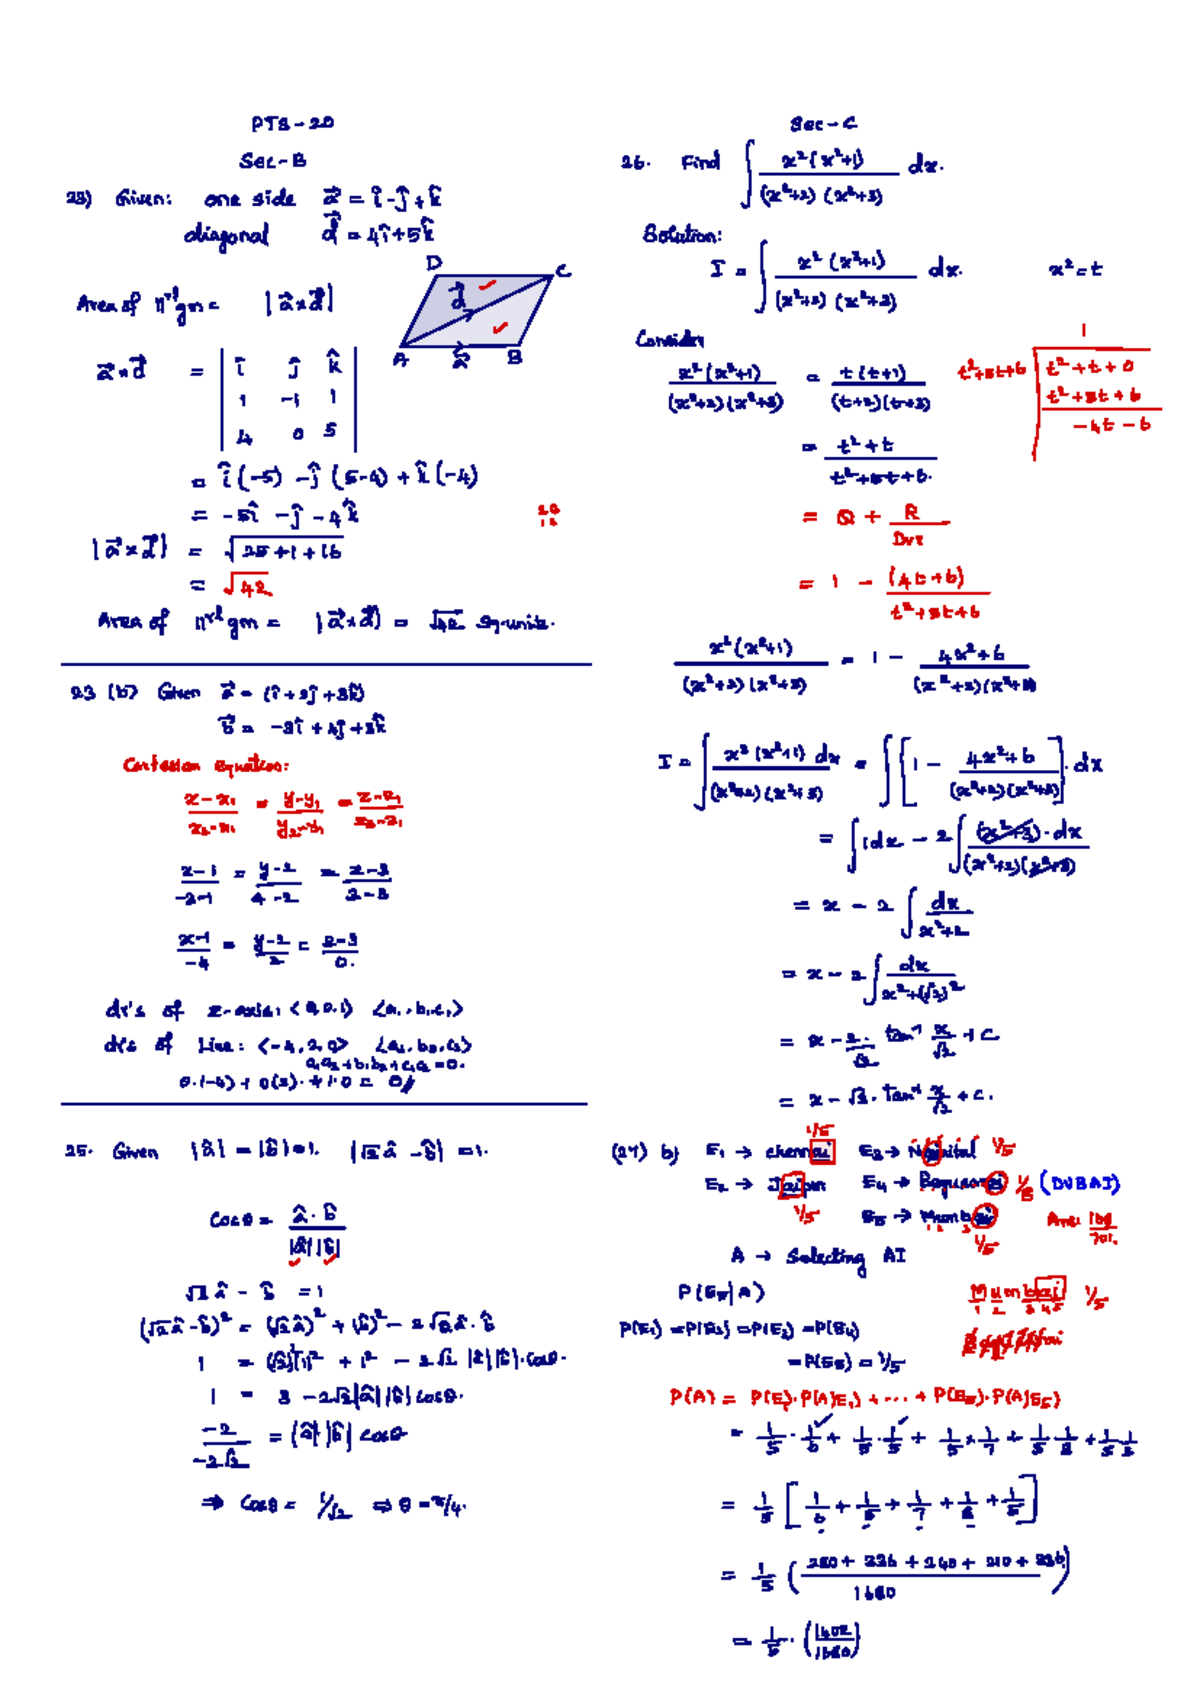 PTS-20
Sec-B
23) Given: one side a⃗ = î-ĵ+k̂
diagonal d⃗ = 4î+5k̂
D C
d⃗
A a⃗ B
Area of ||rl gm = |a⃗×d⃗|
a⃗×d⃗ = | î ĵ k̂ |
1 -1 1
4 0 5
= î(-5) -ĵ(5-4) + k̂(-4)
= -5î -ĵ -4k̂
|a⃗×d⃗| = √(25+1+16)
= √42
Area of ||rl gm = |a⃗×d⃗| = √42 sq.units.
23 (b) Given a⃗ = (î+2ĵ+3k̂)
b⃗ = -3î+4ĵ+3k̂
Cartesian Equation:
(x-x₁)/(x₂-x₁) = (y-y₁)/(y₂-y₁) = (z-z₁)/(z₂-z₁)
(x-1)/(-3-1) = (y-2)/(4-2) = (z-3)/(3-3)
(x-1)/-4 = (y-2)/2 = (z-3)/0.
dr's of z-axis: <0,0,1> <a₁,b₁,c₁>
dr's of Line: <-4,2,0> <a₂,b₂,c₂>
a₁a₂+b₁b₂+c₁c₂=0.
0.(-4)+0(2).+1.0 = 0//
25. Given |â| = |b̂| = 1. |√2 â - b̂| = 1.
Cosθ = (â.b̂)/(|â||b̂|)
√2 â - b̂ = 1
(√2 â - b̂)² = (√2 â)² + (b̂)² - 2√2 â.b̂
1 = (√2)²(1)² + 1² - 2√2 |â||b̂|.cosθ.
1 = 3 - 2√2|â||b̂| cosθ.
-2/-2√2 = |â||b̂| cosθ
⇒ Cosθ = 1/√2 ⇒ θ = π/4.
Sec-C
26. Find ∫ x²(x²+1)/((x²+2)(x²+3)) dx.
Solution:
I = ∫ x²(x²+1)/((x²+2)(x²+3)) dx. x²=t
Consider
x²(x²+1)/((x²+2)(x²+3)) = t(t+1)/((t+2)(t+3))
= (t²+t)/(t²+5t+6).
1
t²+5t+6 | t²+t+0
t²+5t+6
-4t-6
= Q + R/Dvr
= 1 - (4t+6)/(t²+5t+6)
x²(x²+1)/((x²+2)(x²+3)) = 1 - (4x²+6)/((x²+2)(x²+3))
I = ∫ x²(x²+1)dx/((x²+2)(x²+3)) = ∫[1 - (4x²+6)/((x²+2)(x²+3))].dx
= ∫1dx - 2∫ (x²+3).dx/((x²+2)(x²+3))
= x - 2∫ dx/(x²+2)
= x - 2∫ dx/(x²+(√2)²)
= x - 2/√2 tan⁻¹ x/√2 + C
= x - √2. tan⁻¹ x/√2 + C.
(27) b) E₁ → Chennai 1/5 E₃ → Nainital 1/5
E₂ → Jaipur 1/5 E₄ → Begusarai 1/5 (DUBAI)
E₅ → Mumbai 1/5
Ans: 168/701.
A → Selecting AI
P(E₅|A)
Mumbai 1/5
P(E₁) = P(E₂) = P(E₃) = P(E₄)
= P(E₅) = 1/5
P(A) = P(E₁).P(A|E₁) + ... + P(E₅).P(A|E₅)
= 1/5 . 1/6 + 1/5 . 1/5 + 1/5 × 1/7 + 1/5 1/8 + 1/5 1/5
= 1/5 [1/6 + 1/5 + 1/7 + 1/8 + 1/5]
= 1/5 ((280+336+240+210+336)/1680)
= 1/5 . (1402/1680)